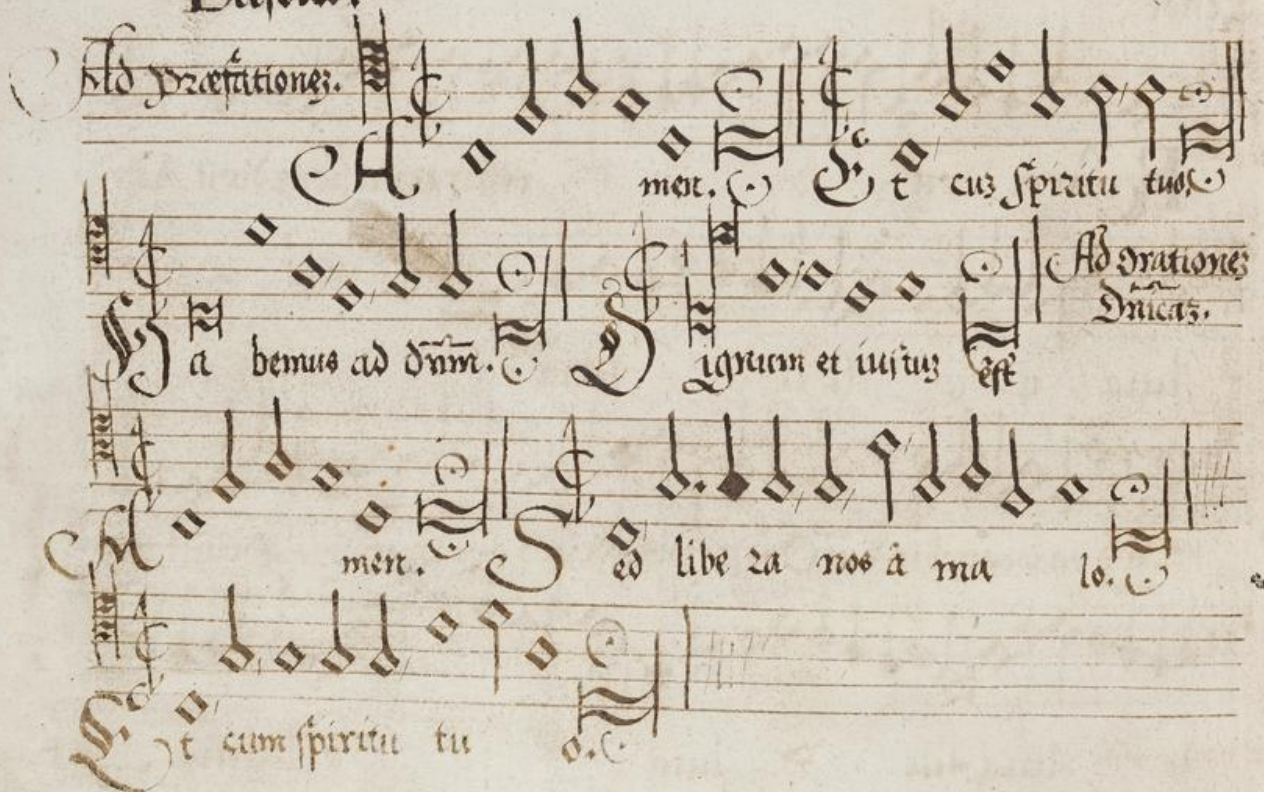 Ad Præfationez.
A men. Et cuz spiritu tuo.
Ha bemus ad dnm. Dignum et iustuz est
Ad orationez
Dnicaz.
A men. Sed libe ra nos â ma lo.
Et cum spiritu tu o.